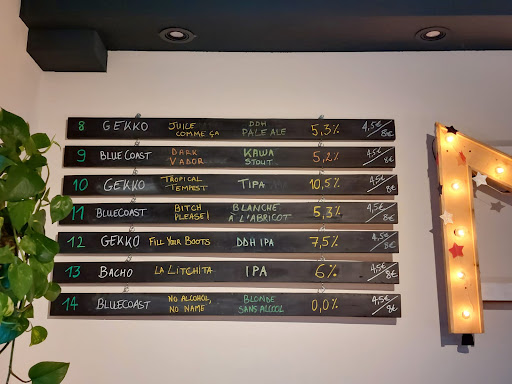 8 GEKKO JUICE COMME ÇA DDH PALE ALE 5,3% 4,5€ 8€
9 BLUECOAST DARK VADOR KAWA STOUT 5,2% 4,5€ 8€
10 GEKKO TROPICAL TEMPEST TIPA 10,5% 4,5€ 8€
11 BLUECOAST BITCH PLEASE! BLANCHE À L'ABRICOT 5,3% 4,5€ 8€
12 GEKKO FILL YOUR BOOTS DDH IPA 7,5% 4,5€ 8€
13 BACHO LA LITCHITA IPA 6% 4,5€ 8€
14 BLUECOAST NO ALCOHOL, NO NAME BLONDE SANS ALCOOL 0,0% 4,5€ 8€